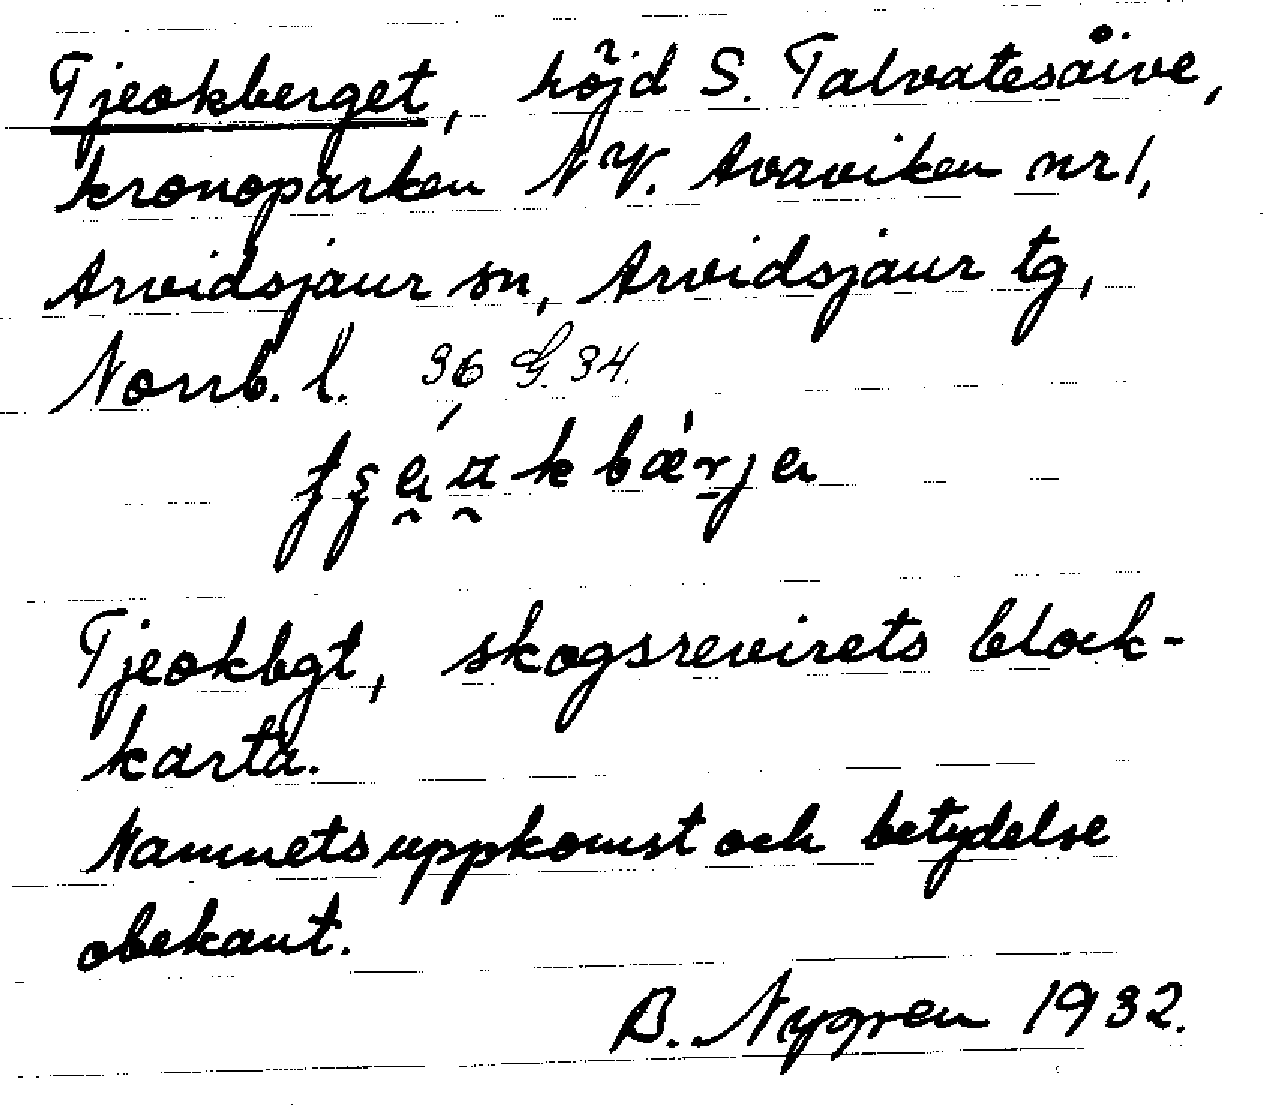 Tjeokberget, höjd S. Talvatesåive,
kronoparken NV. Avaviken nr 1,
Arvidsjaur sn, Arvidsjaur tg,
Norrb. l. 36 G. 34.
Tjeokbgt, skogsrevirets block-
karta.
Namnets uppkomst och betydelse
obekant.
B. Nygren 1932.